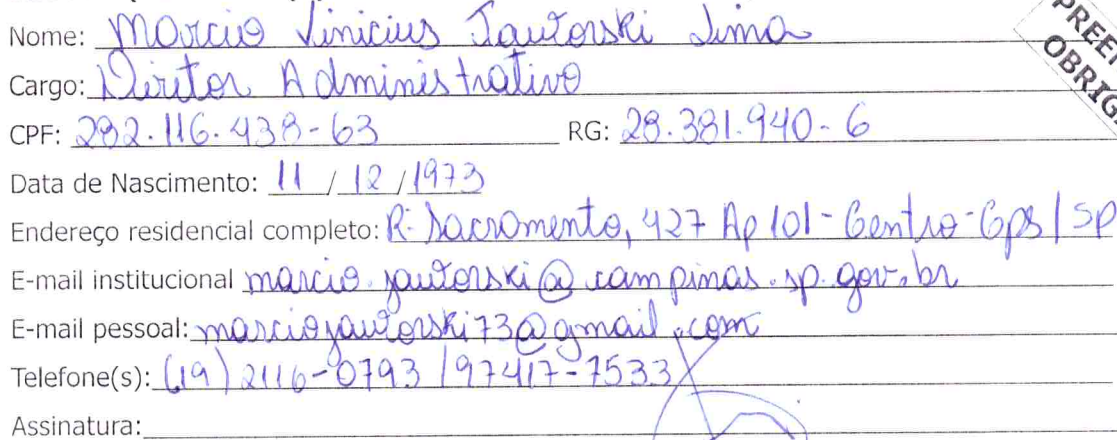 Nome: Marcio Vinicius Jautorski Lima
Cargo: Diretor Administrativo
CPF: 292.116.438-63 RG: 28.381.940-6
Data de Nascimento: 11/12/1973
Endereço residencial completo: R. Sacramento, 427 Ap 101 - Centro - Cps/SP
E-mail institucional marcio.jautorski@campinas.sp.gov.br
E-mail pessoal: marciojautorski73@gmail.com
Telefone(s): (19) 2116-0793 / 97417-7533
Assinatura: